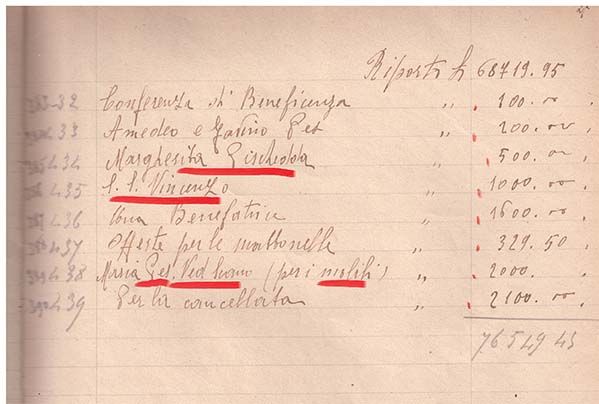 Riporto £ 68719.95
32 Conferenza di Beneficenza „ 100.00
33 Amedeo e Gavino Pes „ 200.00
434 Margherita Pischedda „ 500.00
435 S. S. Vincenzo „ 1000.00
436 Una Benefatrice „ 1600.00
437 Offerte per le mattonelle „ 329.50
438 Maria Pes. Ved (per i mobili) „ 2000.
439 Per la cancellata „ 2100.00
76549 45